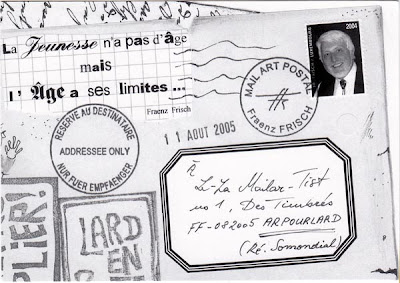 La Jeunesse n'a pas d'âge
mais
l' Âge a ses limites ...
Fraenz Frisch
2004
MAIL ART POSTAL
Fraenz FRISCH
RESERVE AU DESTINATAIRE
ADDRESSEE ONLY
NUR FUER EMPFAENGER
11 AOUT 2005
À
Li-La Mailar-Tist
no 1, Des Timbrés
FF-082005 ARPOURLARD
(Ré. Somondial)
PLIER!
LARD
EN